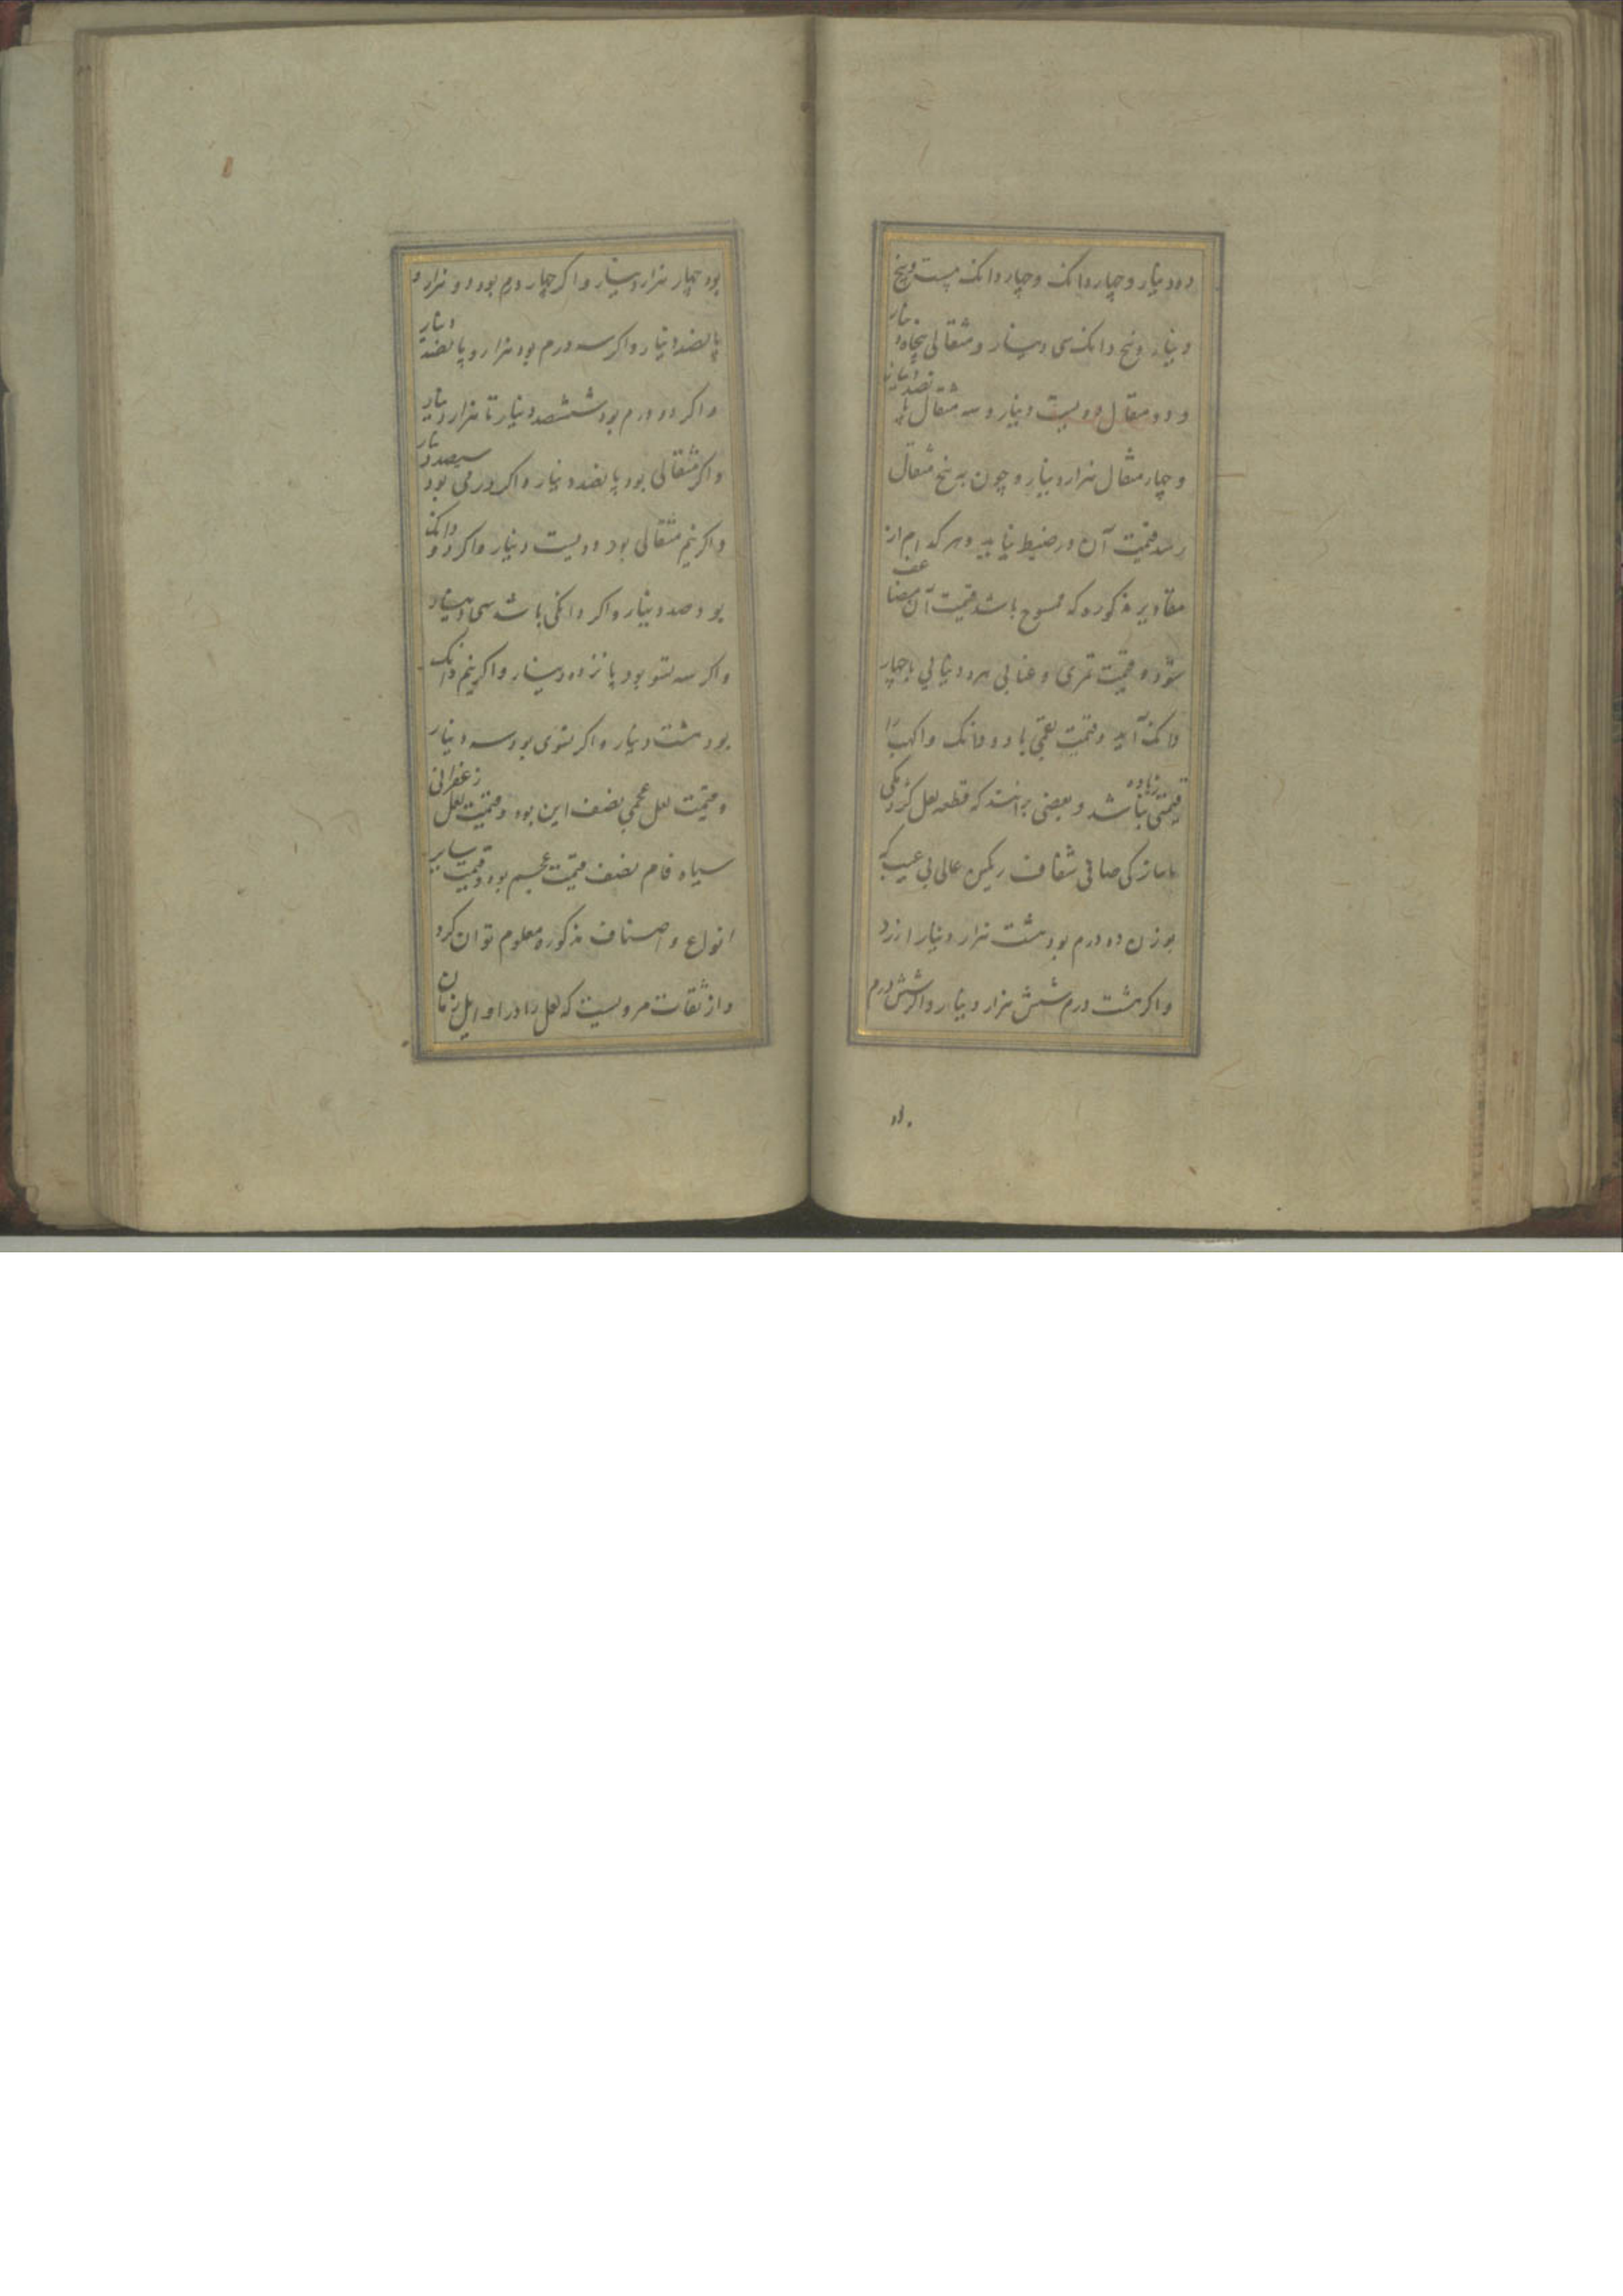 ده دینار و چهار دانک و چهار دانک بیست و پنج
دینار و پنج دانک سی دینار و مثقالی پنجاه دینار
و دو مثقال دویست دینار و سه مثقال پانصد دینار
و چهار مثقال هزار دینار و چون به پنج مثقال
رسد قیمت آن در ضبط نیاید و هر کدام از
مقادیر مذکوره که ممسوح باشد قیمت آن مضاعف
شود و قیمت تمری و عنابی هر دیناری با چهار
دانک آید و قیمت بقمی با دو دانک و اکهب را
زیاده قیمتی نباشد و بعضی برانند که قطعه لعل کردکی
ماساز کی صافی شفاف رنگین عالی بی عیب که
بوزن ده درم بود هشت هزار دینار ارزد
و اکر هشت درم شش هزار دینار و اکر شش درم
بود چهار هزار دینار و اکر چهار درم بود دو هزار و
پانصد دینار و اکر سه درم بود هزار و پانصد دینار
و اکر دو درم بود ششصد دینار تا هزار دینار
و اکر مثقالی بود پانصد دینار و اکر درمی بود سیصد دینار
و اکر نیم مثقالی بود دویست دینار و اکر دو دانک
بود صد دینار و اکر دانکی باشد سی دینار
و اکر سه تسو بود پانزده دینار و اکر نیم دانک
بود هشت دینار و اکر تسوی بود سه دینار
و قیمت لعل عجمی نصف این بود و قیمت لعل زعفرانی
سیاه فام نصف قیمت عجم بود و قیمت سایر
انواع و اصناف مذکوره معلوم توان کرد
و از ثقات مرویست که لعل را در اوایل زمان